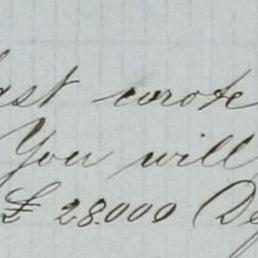 last wrote
You will
£ 28.000 (De